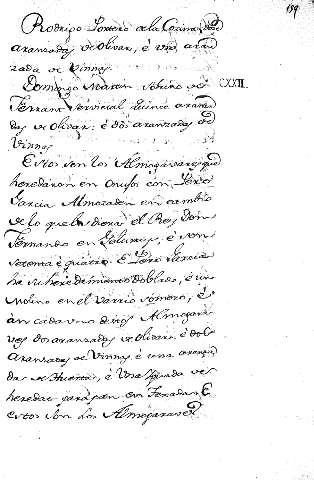 159
Rodrigo Lorenzo de la Cocina, dos
aranzadas de Olivar, é una aran
zada de Vinnas
Domingo Martin Sobrino de
XXII.
Ferrant Servicial quince aranza
das de Olivar: é dos aranzadas de
Vinnas
Estos son los Almogavares que
heredaron en con Pero
Garcia Almocaden en cambio
de lo que les diera el Rey Don
Fernando en é son
setenta é quatro. É Pero Garcia
ha su heredamiento doblado, é un
Molino en el Varrio somero, é
án cada uno destos Almogava
res dos aranzadas de Olivar é dos
Aranzadas de Vinnas é una aranza
da de Huerta, é una yugada de
heredat para pan en Tenadas É
estos son los Almogavares